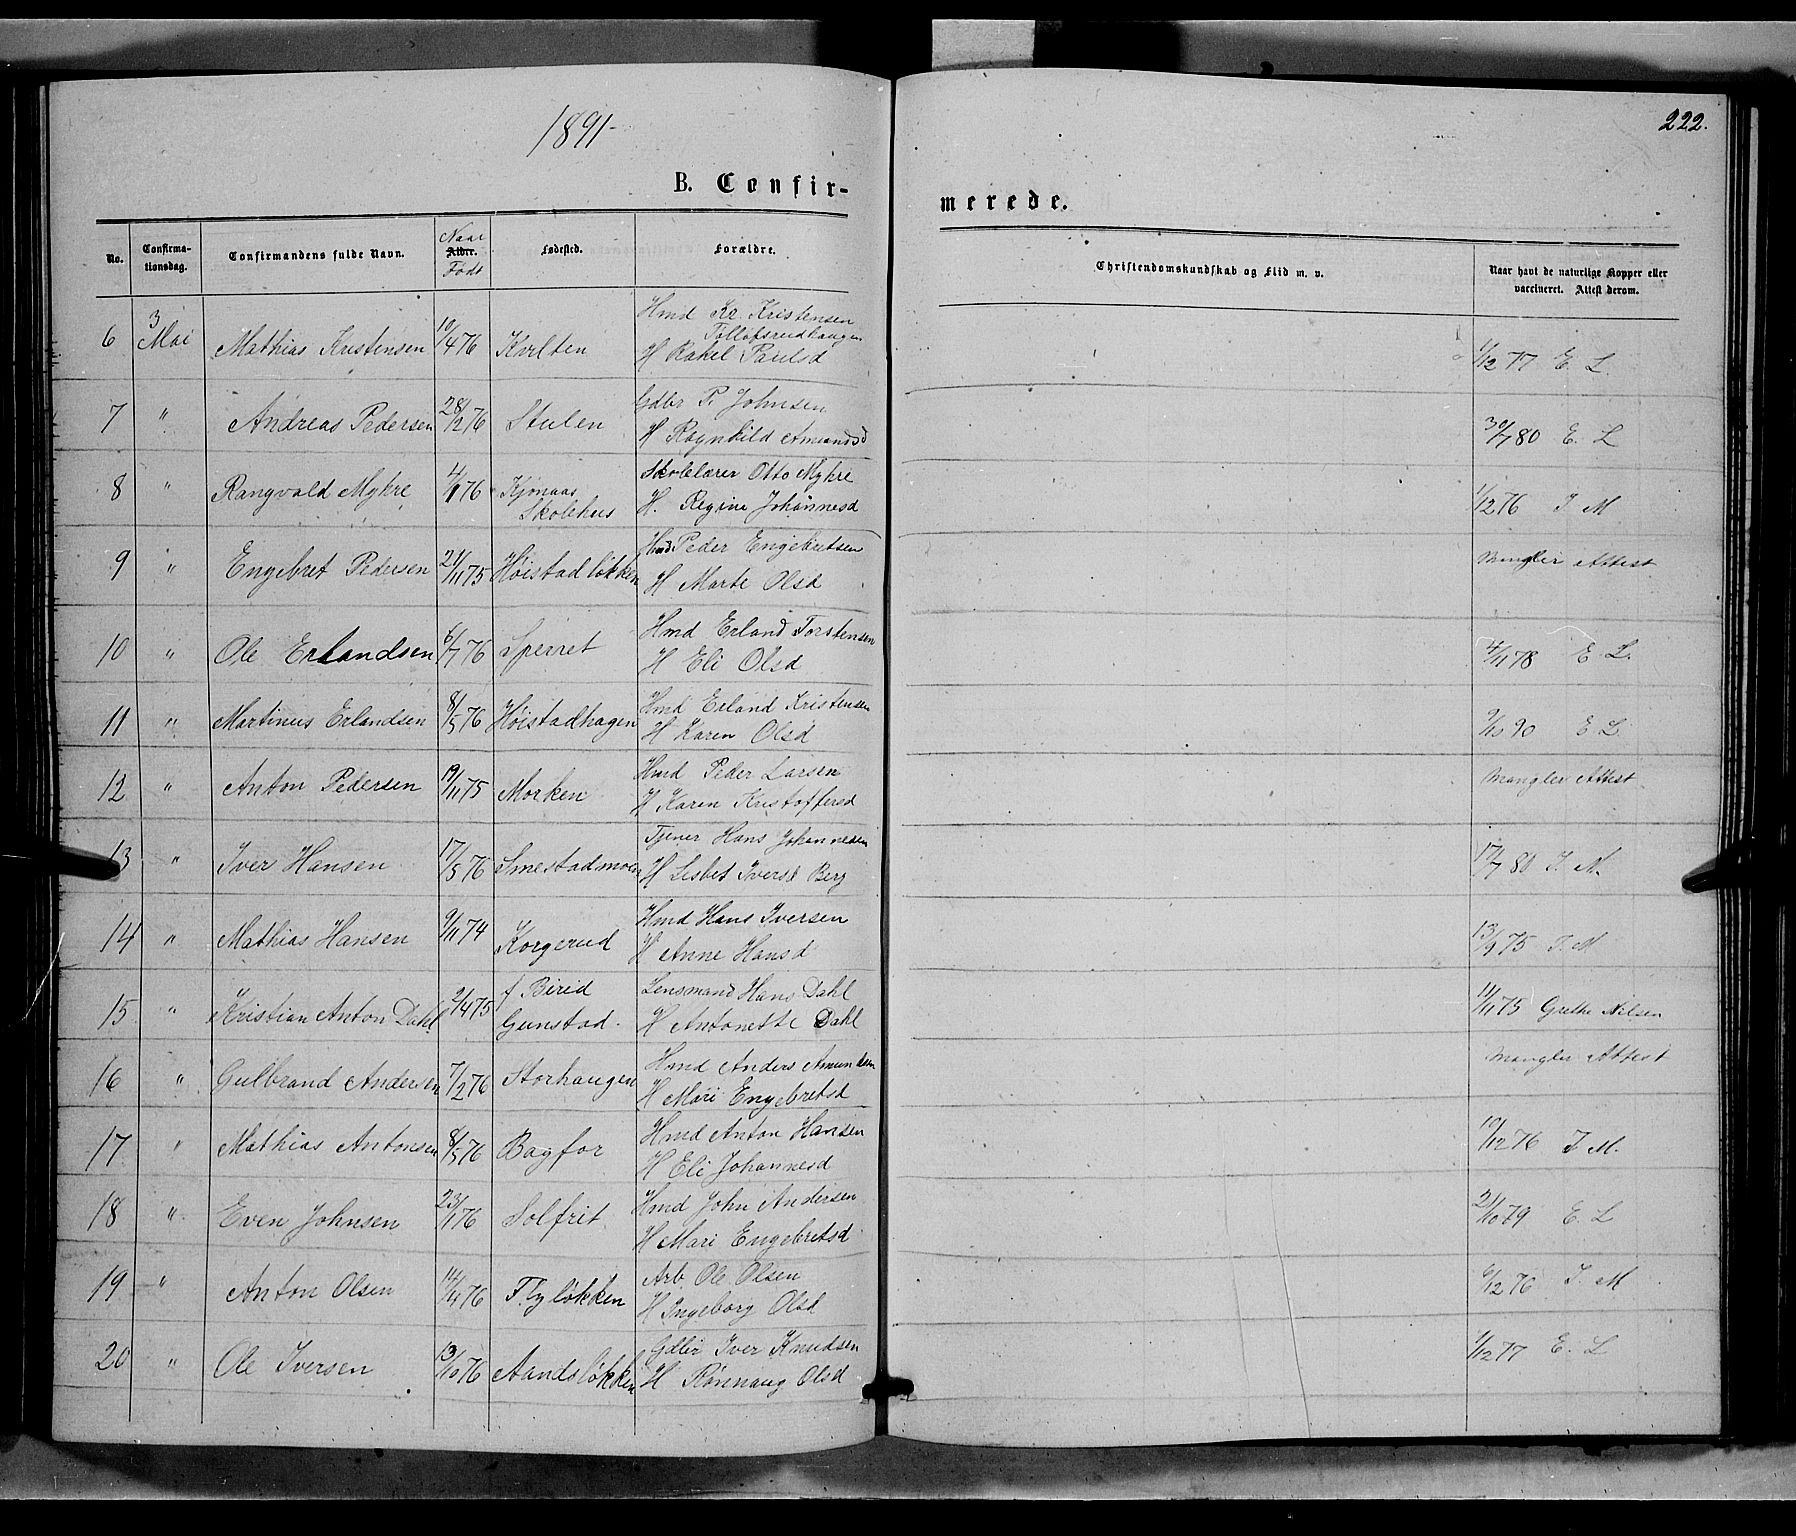 1891
222.
B. Confir-
merede.
No. Confirma-tionsdag. Confirmandens fulde Navn. Naar Alder. Født Fødested. Forældre. Christendomskundskab og Flid m. v. Naar havt de naturlige Kopper eller vaccineret. Attest derom.
6 3 Mai Mathias Kristensen 10/4 76 Kvilten Hmd Kr. Kristensen Tollofsrudhaugen
H Rakel Paulsd 1/12 77 E. L.
7 " Andreas Pedersen 28/12 76 Stulen Gdbr P. Johnsen
H Ragnhild Amundsd 30/7 80 E. L
8 " Rangvald Myhre 4/1 76 Kjønaas Skolehus Skolelærer Otto Myhre
H. Regine Johannesd 1/12 76 J M
9 " Engebret Pedersen 21/11 75 Høistadløkken Hmd Peder Engebretsen
H Marte Olsd Mangler Attest
10 " Ole Erlandsen 6/7 76 Sperret Hmd Erland Torstensen
H Eli Olsd 4/11 78 E L.
11 " Martinus Erlandsen 8/5 76 Høistadhagen Hmd Erland Kristensen
H Karen Olsd 9/10 90 E L
12 " Anton Pedersen 19/11 75 Morken Hmd Peder Larsen
H Karen Kristoffersd Mangler Attest
13 " Iver Hansen 17/5 76 Smestadmoen Tjener Hans Johannesen
H Lisbet Iversd Berg 17/7 80 J. M.
14 " Mathias Hansen 9/11 74 Korgerud Hmd Hans Iversen
H Anne Hansd 13/9 75 J. M
15 " Kristian Anton Dahl 2/4 75 f Birid Gunstad. Lensmand Hans Dahl
H Antonette Dahl 11/11 75 Grethe Nilsen
16 " Gulbrand Andersen 7/2 76 Storhaugen Hmd Anders Amundsen
H Mari Engebretsd Mangler Attest
17 " Mathias Antonsen 8/5 76 Bagfor Hmd Anton Hansen
H Eli Johannesd 10/12 76 J M.
18 " Even Johnsen 23/1 76 Solfrit Hmd John Andersen
H Mari Engebretsd 21/10 79 E. L
19 " Anton Olsen 14/4 76 Flyløkken Arb. Ole Olsen
H Ingeborg Olsd 6/12 76 J. M
20 " Ole Iversen 13/10 76 Aandsløkken Gdbr Iver Knudsen
H Rønnaug Olsd 1/12 77 E. L